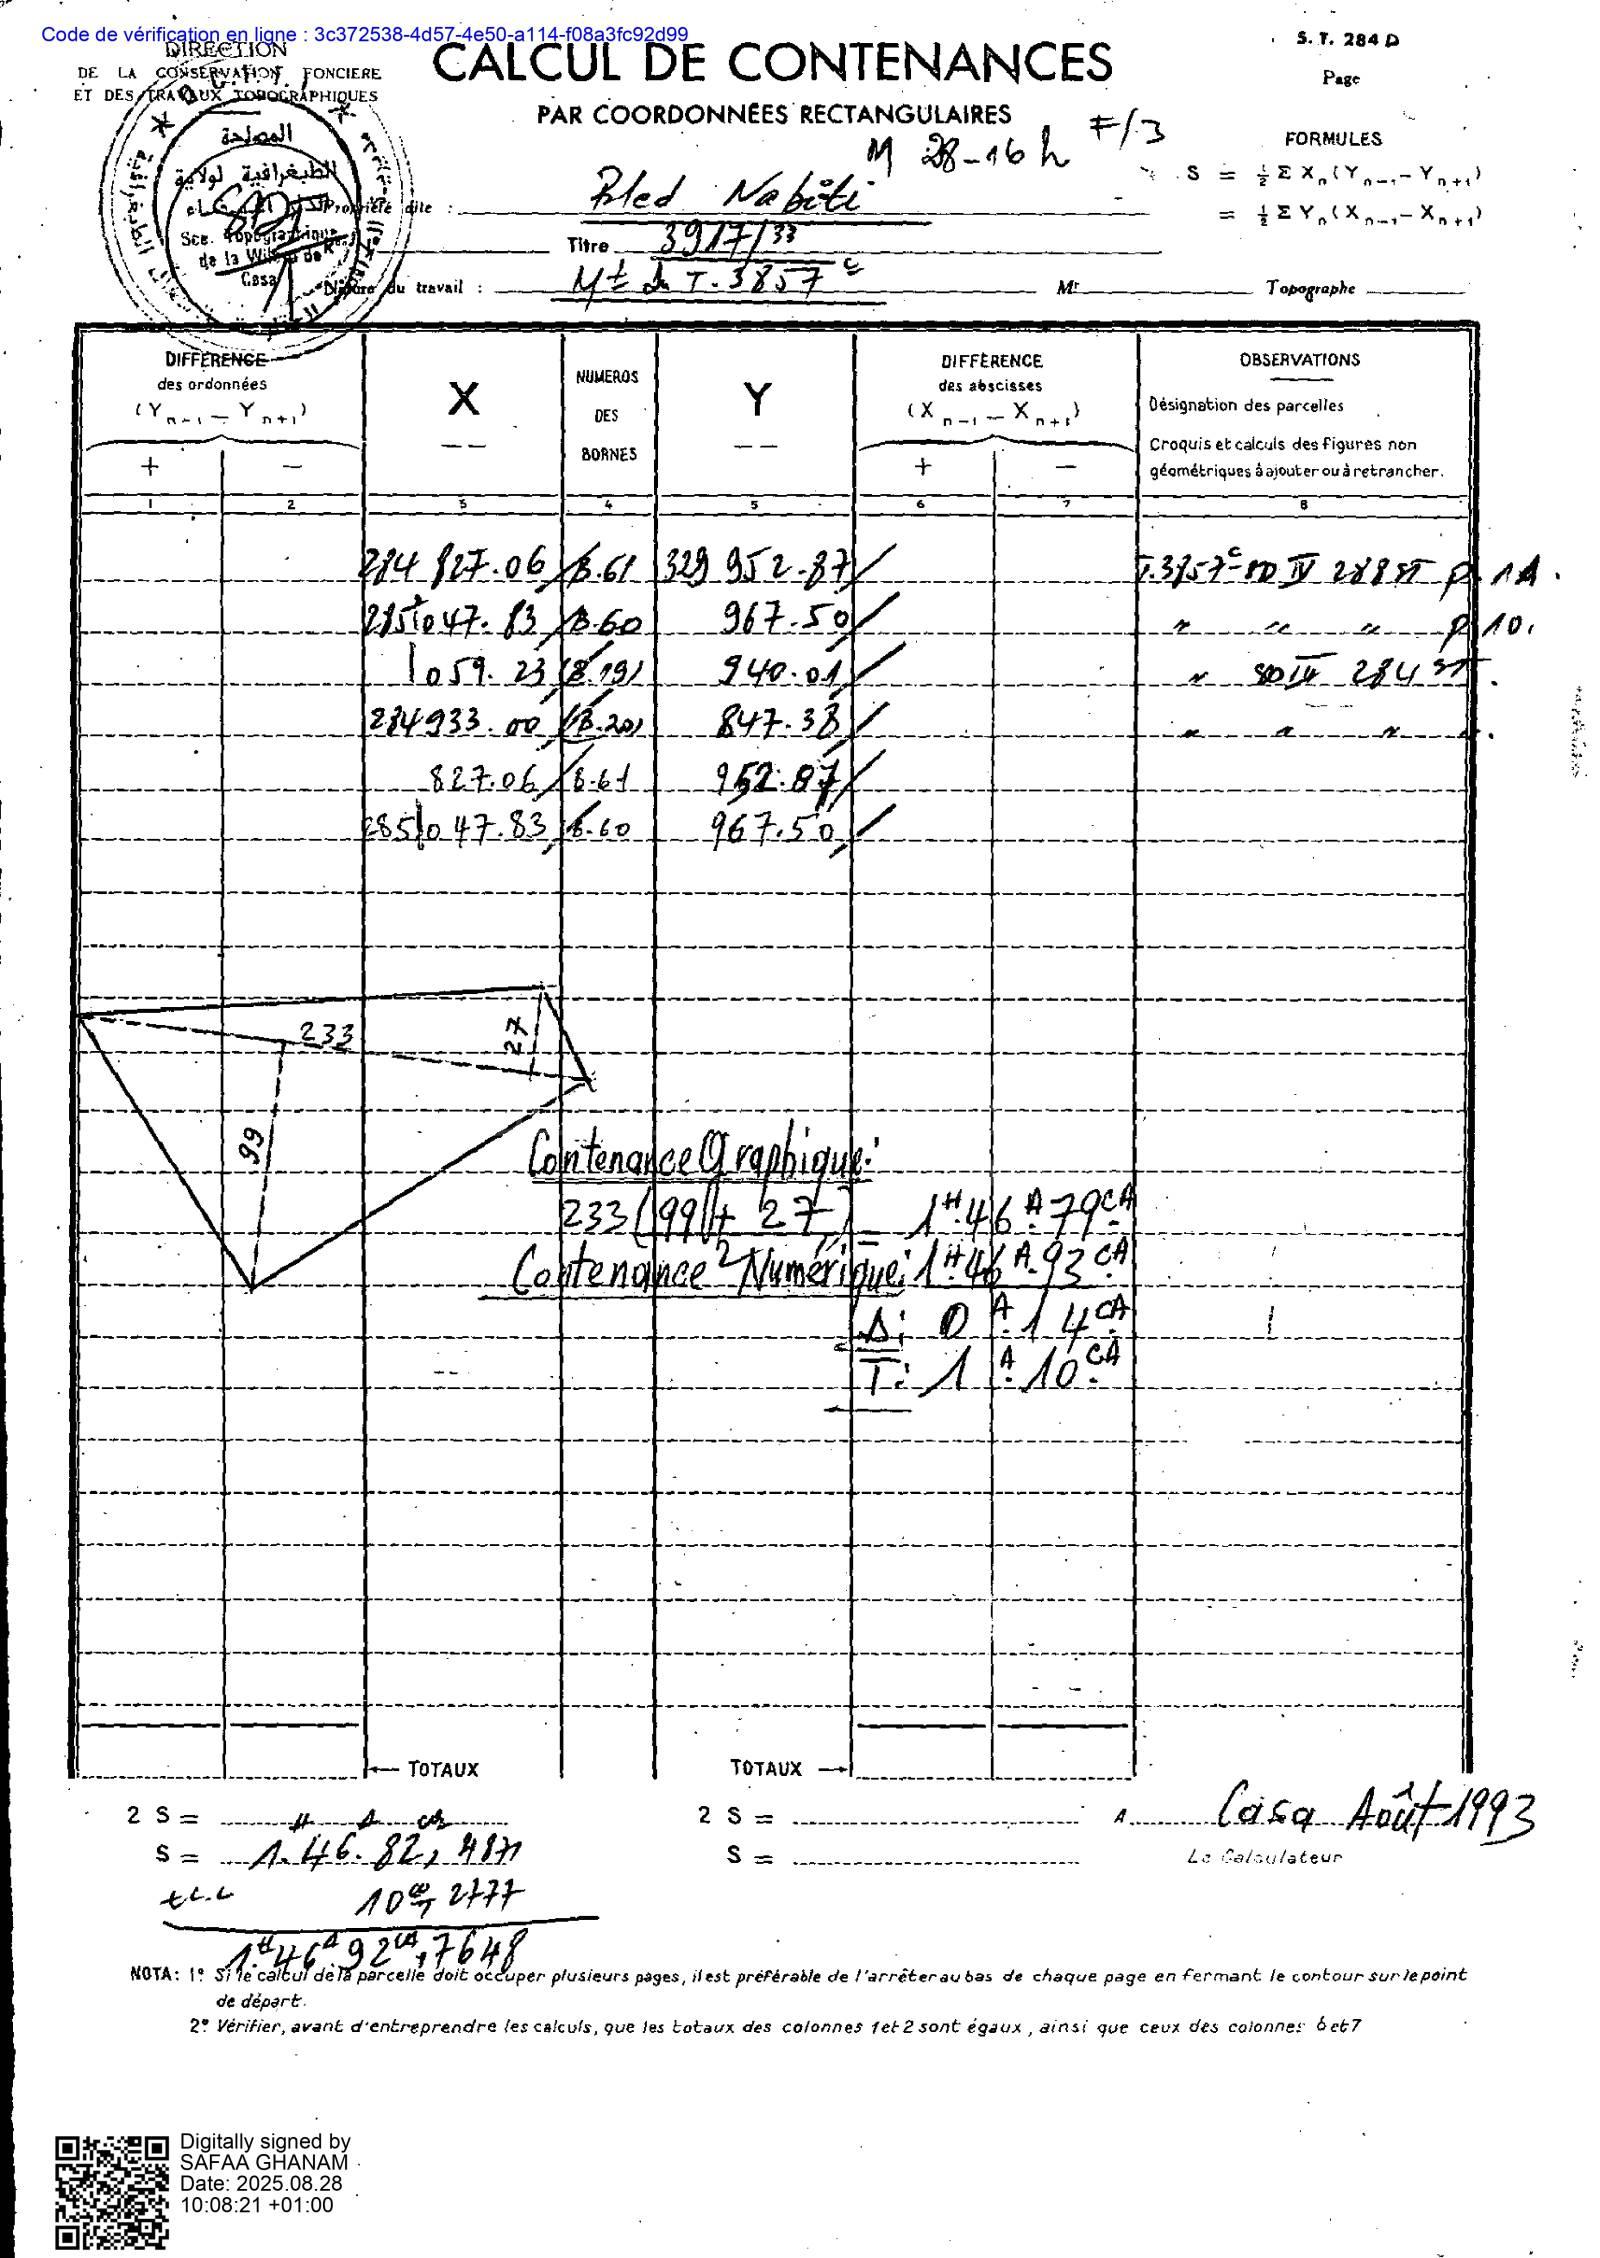 Code de vérification en ligne : 3c372538-4d57-4e50-a114-f08a3fc92d99
DIRECTION
DE LA CONSERVATION FONCIERE
ET DES TRAVAUX TOPOGRAPHIQUES
CALCUL DE CONTENANCES
PAR COORDONNÉES RECTANGULAIRES
S. T. 284 D
Page
M 28-16 h F/3
FORMULES
S = ½ Σ Xn (Yn-1 - Yn+1)
= ½ Σ Yn (Xn-1 - Xn+1)
المصلحة
الطبغرافية لولاية
Sce. Topographique
de la Wilaya de
Casa
Propriété dite : Bled Nabôti
Titre 3917/33
Nature du travail : Mt du T. 3857 c
Mr Topographe
DIFFÉRENCE
des ordonnées
(Yn-1 - Yn+1)
+ -
X
NUMEROS
DES
BORNES
Y
DIFFÉRENCE
des abscisses
(Xn-1 - Xn+1)
+ -
OBSERVATIONS
Désignation des parcelles
Croquis et calculs des figures non
géométriques à ajouter ou à retrancher.
1 2 3 4 5 6 7 8
284 827.06 B.61 329 952.87 T.3857c
285 047.83 B.60 967.50 " " " p 10.
1059.23 (B.19) 940.01 "
284933.00 (B.20) 847.38 " " " "
827.06 B.61 952.87
285 047.83 B.60 967.50
233
27
99
Contenance Graphique:
233 (99 + 27) = 1H.46A.79CA
2
Contenance Numérique: 1H.46A.93CA
Δ: 0A.14CA
T: 1A.10CA
← TOTAUX
TOTAUX →
2 S = H A ca
S = 1.46.82,4871
10ca,2777
1H46A92CA,7648
2 S =
S =
A Casa Août 1993
Le Calculateur
NOTA: 1° Si le calcul de la parcelle doit occuper plusieurs pages, il est préférable de l'arrêter au bas de chaque page en fermant le contour sur le point
de départ.
2° Vérifier, avant d'entreprendre les calculs, que les totaux des colonnes 1 et 2 sont égaux, ainsi que ceux des colonnes 6 et 7
Digitally signed by
SAFAA GHANAM
Date: 2025.08.28
10:08:21 +01:00